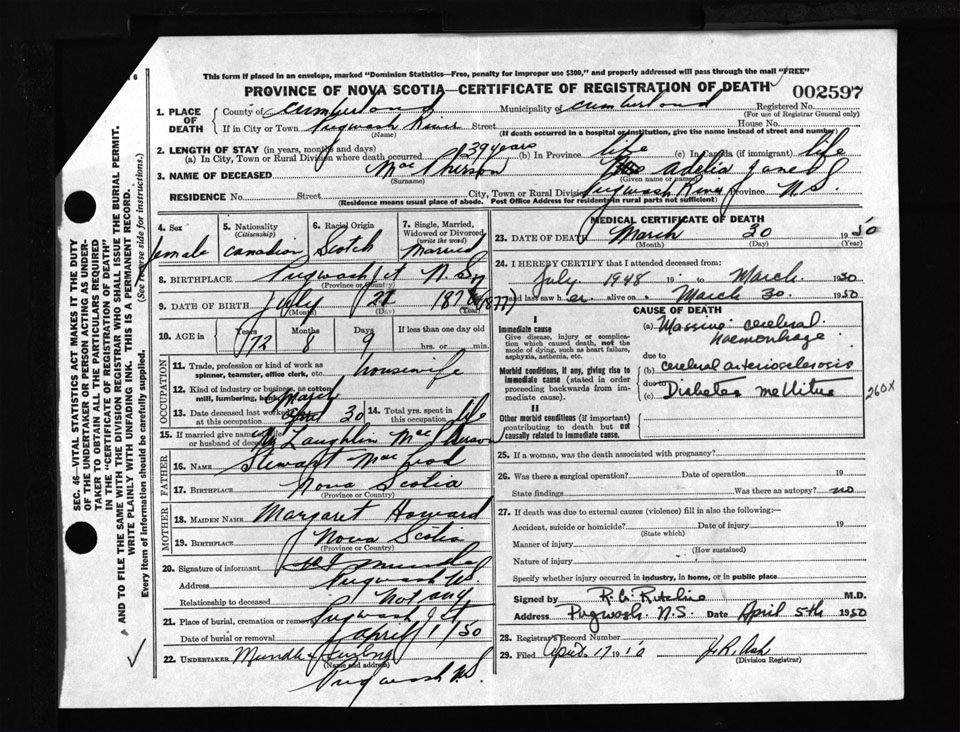 This form if placed in an envelope, marked "Dominion Statistics—Free, penalty for improper use $300," and properly addressed will pass through the mail "FREE"
PROVINCE OF NOVA SCOTIA—CERTIFICATE OF REGISTRATION OF DEATH 002597
1. PLACE OF DEATH County of Cumberland Municipality of Cumberland Registered No.
(For use of Registrar General only)
If in City or Town Pugwash River Street House No.
(Name) (If death occurred in a hospital or institution, give the name instead of street and number)
2. LENGTH OF STAY (in years, months and days)
(a) In City, Town or Rural Division where death occurred 39 years (b) In Province life (c) In Canada (if immigrant) life
3. NAME OF DECEASED Mac Pherson Adelia Jane
(Surname) (Given name or names)
RESIDENCE No. Street City, Town or Rural Division Pugwash River Province N.S.
(Residence means usual place of abode. Post Office Address for residents in rural parts not sufficient)
4. Sex female
5. Nationality (Citizenship) Canadian
6. Racial Origin Scotch
7. Single, Married, Widowed or Divorced (write the word) Married
8. BIRTHPLACE Pugwash Jct N.S.
(Province or County)
9. DATE OF BIRTH July 21 187 (1877)
(Month) (Day) (Year)
10. AGE in Years 72 Months 8 Days 9 If less than one day old hrs. or min.
OCCUPATION
11. Trade, profession or kind of work as spinner, teamster, office clerk, etc. housewife
12. Kind of industry or business, as cotton mill, lumbering, bank,
13. Date deceased last worked at this occupation March 30
14. Total yrs. spent in this occupation life
15. If married give name of wife or husband of deceased Laughlin MacPherson
FATHER
16. NAME Stewart MacLeod
17. BIRTHPLACE Nova Scotia
(Province or Country)
MOTHER
18. MAIDEN NAME Margaret Howard
19. BIRTHPLACE Nova Scotia
(Province or Country)
20. Signature of informant
Address Pugwash N.S.
Relationship to deceased Not any
21. Place of burial, cremation or removal Pugwash Jct
Date of burial or removal April 1/50
22. UNDERTAKER
(Name and address)
Pugwash N.S.
MEDICAL CERTIFICATE OF DEATH
23. DATE OF DEATH March 30 1950
(Month) (Day) (Year)
24. I HEREBY CERTIFY that I attended deceased from:
July 1948 to March 1950
and last saw her alive on March 30. 1950
CAUSE OF DEATH
I
Immediate cause
Give disease, injury or complication which caused death, not the mode of dying, such as heart failure, asphyxia, asthenia, etc.
(a) Massive cerebral haemorrhage
due to
Morbid conditions, if any, giving rise to immediate cause (stated in order proceeding backwards from immediate cause).
(b) cerebral arteriosclerosis
due to
(c) Diabetes mellitus 260X
II
Other morbid conditions (if important) contributing to death but not causally related to immediate cause.
25. If a woman, was the death associated with pregnancy?
26. Was there a surgical operation? Date of operation 19
State findings Was there an autopsy? no
27. If death was due to external causes (violence) fill in also the following:—
Accident, suicide or homicide? Date of injury 19
(State which)
Manner of injury
(How sustained)
Nature of injury
Specify whether injury occurred in industry, in home, or in public place
Signed by R.G. Ritchie M.D.
Address Pugwash. N.S. Date April 5th 1950
28. Registrar's Record Number
29. Filed April 17 19 J.R. Ash
(Division Registrar)
SEC. 46—VITAL STATISTICS ACT MAKES IT THE DUTY
OF THE UNDERTAKER OR PERSON ACTING AS UNDERTAKER
TO OBTAIN ALL THE PARTICULARS REQUIRED
IN THE "CERTIFICATE OF REGISTRATION OF DEATH"
AND TO FILE THE SAME WITH THE DIVISION REGISTRAR WHO SHALL ISSUE THE BURIAL PERMIT.
WRITE PLAINLY WITH UNFADING INK. THIS IS A PERMANENT RECORD.
Every item of information should be carefully supplied. (See reverse side for instructions.)